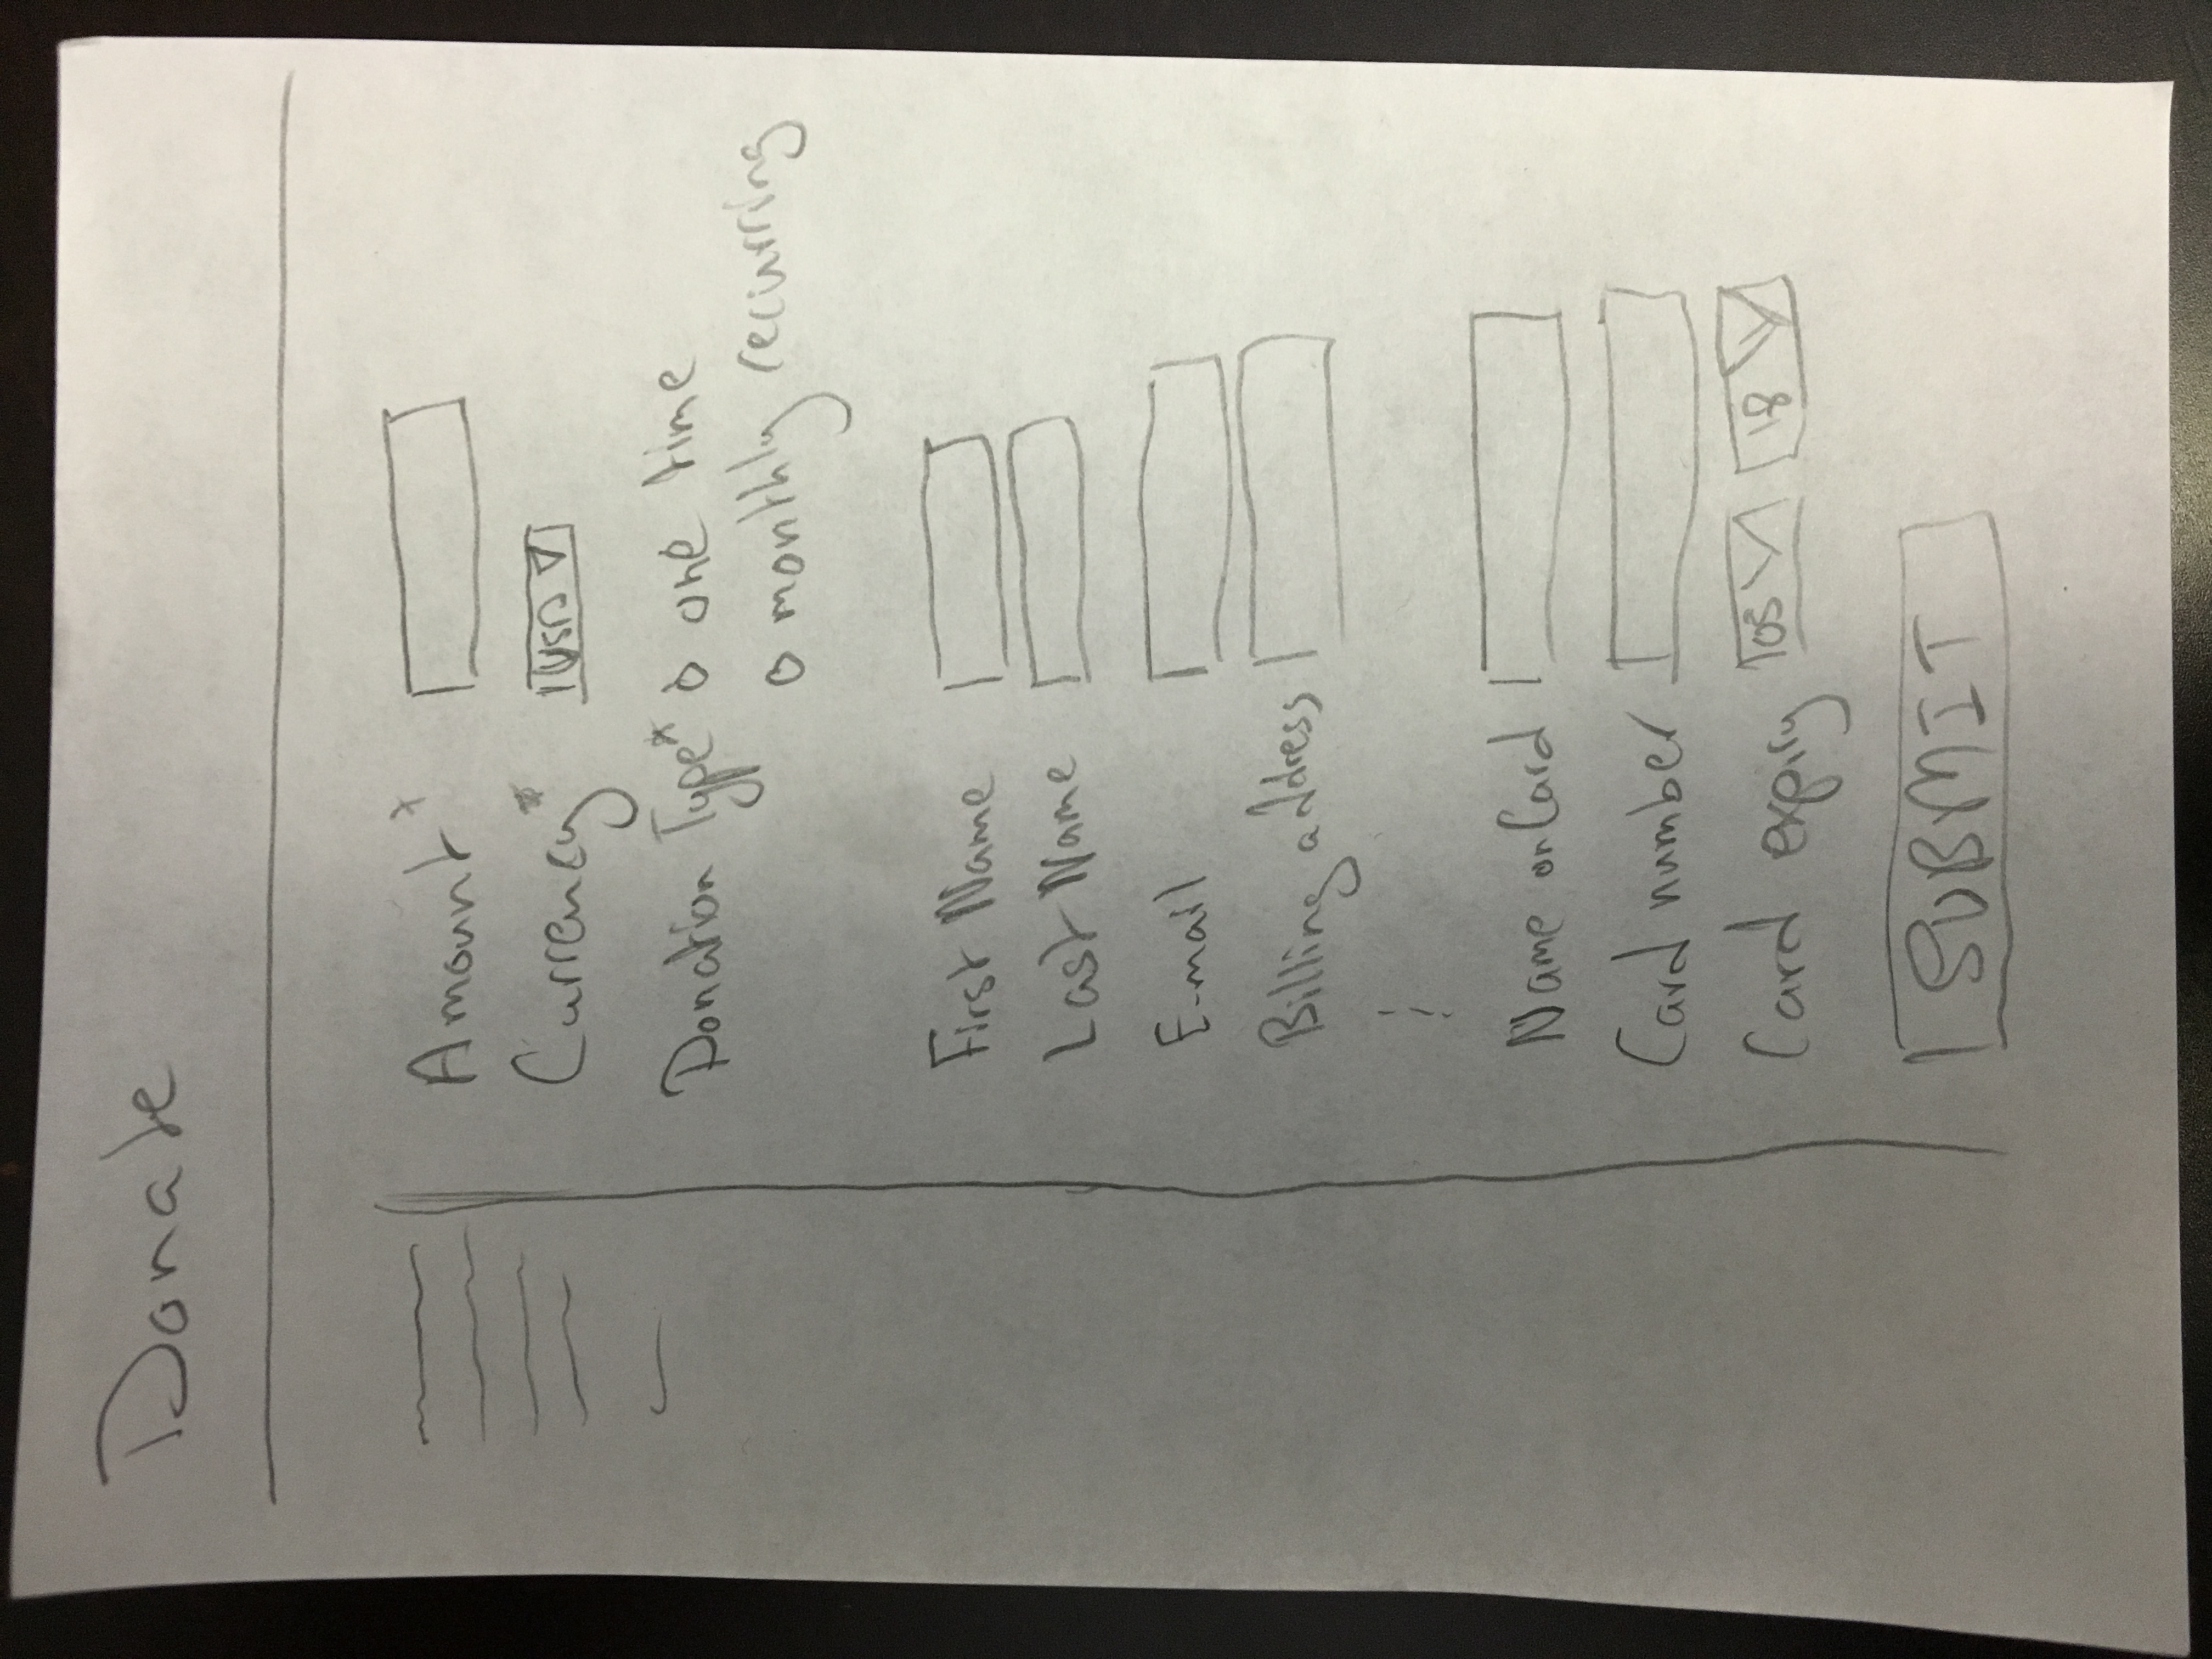 Donate
Amount*
Currency* USD
Donation Type* o one time
o monthly recurring
First Name
Last Name
E-mail
Billing address
⋮
Name on Card
Card number
Card expiry 05 18
SUBMIT